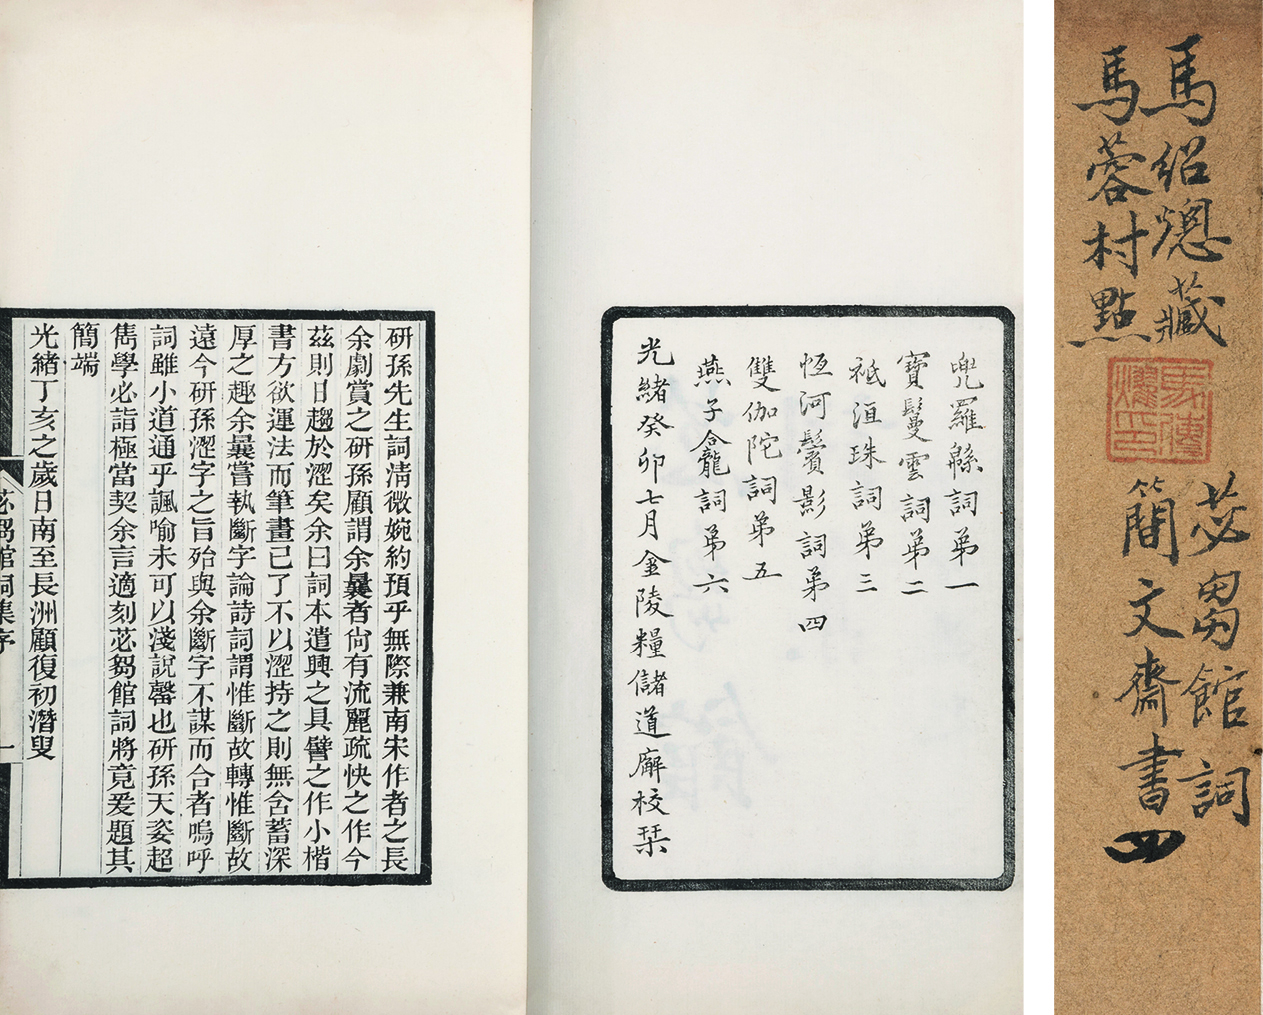 馬紹熜藏
馬蓉村點
苾芻館詞
簡文齋書
兜羅緜詞弟一
寶鬘雲詞弟二
祇洹珠詞弟三
恆河鬢影詞弟四
雙伽陀詞弟五
燕子龕詞弟六
光緒癸卯七月金陵糧儲道廨校栞
研孫先生詞清微婉約預乎無際兼南宋作者之長
余劇賞之研孫顧謂余曩者尙有流麗疏快之作今
茲則日趨於澀矣余曰詞本遣興之具譬之作小楷
書方欲運法而筆畫已了不以澀持之則無含蓄深
厚之趣余曩嘗執斷字論詩詞謂惟斷故轉惟斷故
遠今研孫澀字之旨殆與余斷字不謀而合者嗚呼
詞雖小道通乎諷喻未可以淺說罄也研孫天姿超
雋學必詣極當契余言適刻苾芻館詞將竟爰題其
簡端
光緒丁亥之歲日南至長洲顧復初潛叟
苾芻館詞集序
一